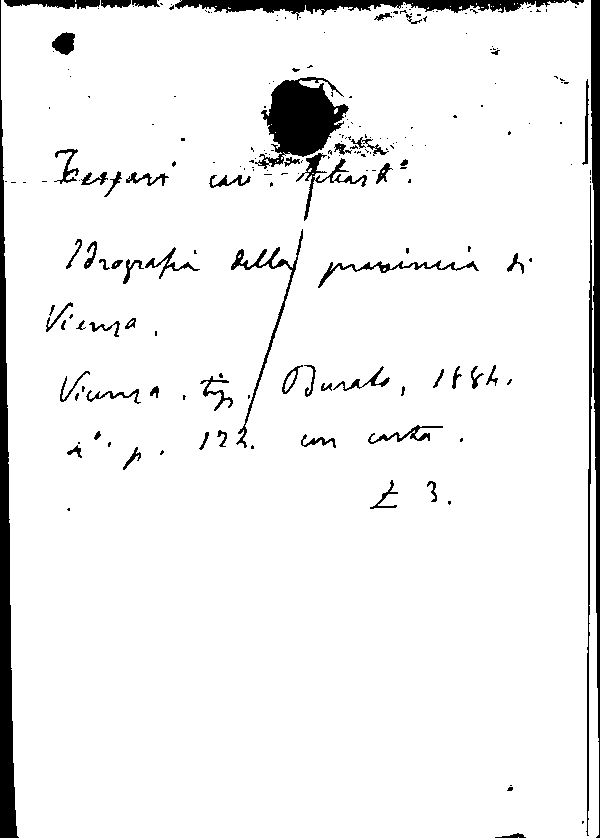 Tespari cav. Attardº.
Idrografia della provincia di
Vicenza.
Vicenza. tip. Burato, 1884.
4º. p. 122. con carta.
£ 3.